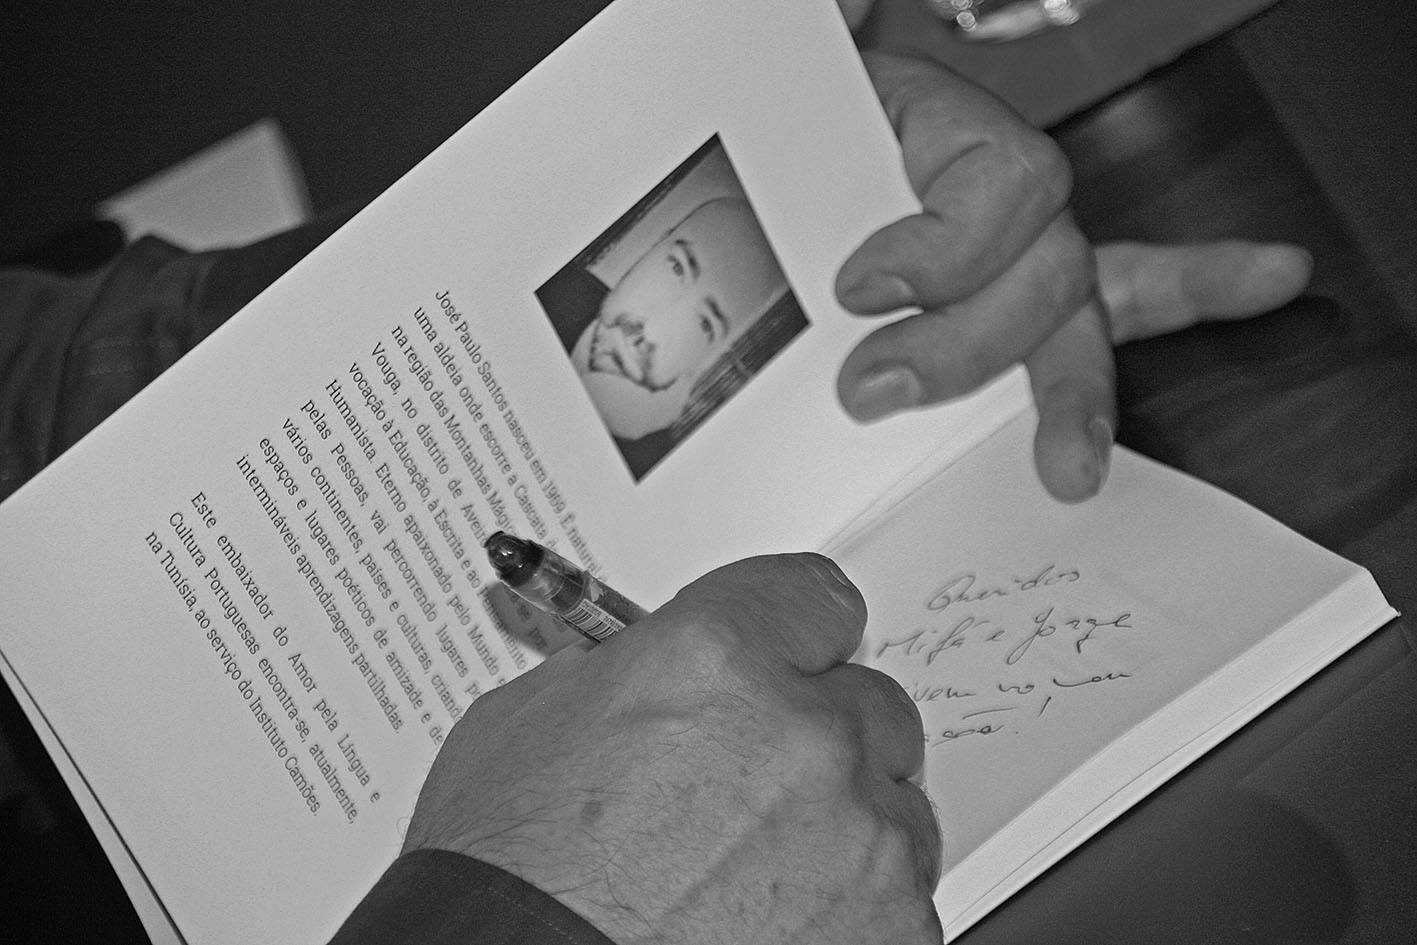 José Paulo Santos nasceu em 1969. É natural
uma aldeia onde escorre a Cascata
na região das Montanhas Mágic
Vouga, no distrito de Aveir
vocação à Educação, à Escrita e ao Pensamento
Humanista. Eterno apaixonado pelo Mundo e
pelas Pessoas, vai percorrendo lugares
vários continentes, países e culturas, criando
espaços e lugares poéticos de amizade e de
intermináveis aprendizagens partilhadas.
Este embaixador do Amor pela Língua e
Cultura Portuguesas encontra-se, atualmente,
na Tunísia, ao serviço do Instituto Camões.
Queridos
Mifá e Jorge
vivem no meu